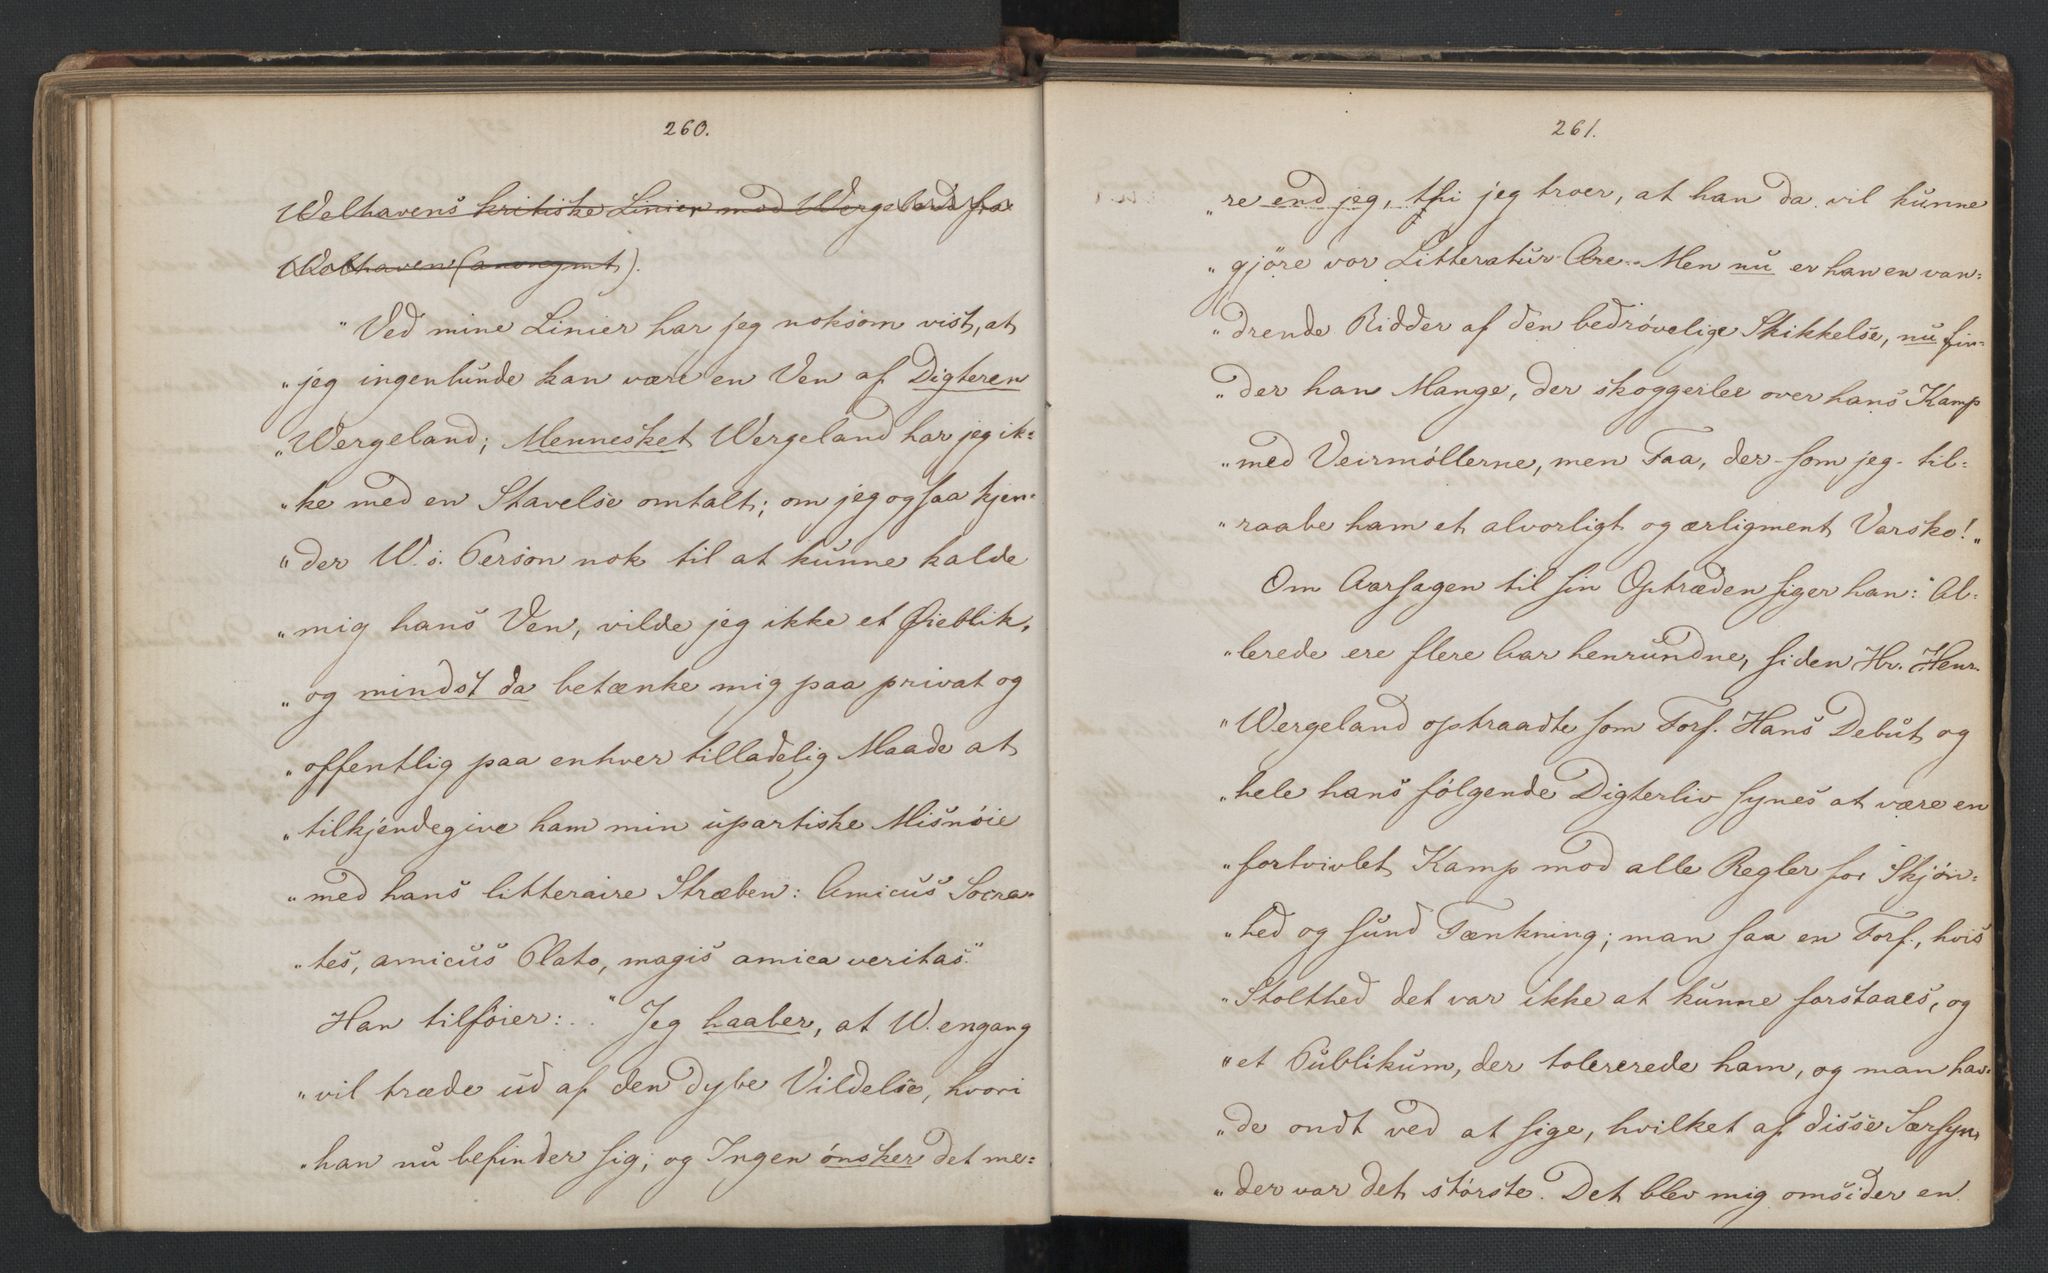 260.
Welhavens kritiske Linier mod Wergeland fra
Welhaven (anonymt).
"Ved mine Linier har jeg noksom vist, at
"jeg ingenlunde kan være en Ven af Digteren
"Wergeland; Mennesket Wergeland har jeg ik=
"ke med en Stavelse omtalt; om jeg ogsaa kjen=
"der W.s. Person nok til at kunne kalde
"mig hans Ven, vilde jeg ikke et Øieblik,
"og mindst da betænke mig paa privat og
"offentlig paa enhver tilladelig Maade at
"tilkjendegive ham min upartiske Misnöie
"med hans litteraire Stræben: Amicus Socra=
"tes, amicus Plato, magis amica veritas."
Han tilföier: .. "Jeg haaber, at W. engang
"vil træde ud af den dybe Vildelse, hvori
"han nu befinder sig; og Ingen önsker det me=
261.
"re end jeg, thi jeg troer, at han da vil kunne
"gjöre vor Litteratur Ære. Men nu er han en van=
"drende Ridder af den bedrövelige Skikkelse, nu fin=
"der han Mange, der skoggerlee over hans Kamp
"med Veirmöllerne, men Faa, der - som jeg - til=
"raabe ham et alvorligt og ærligment Varsko!"
Om Aarsagen til sin Optræden siger han: "Al=
"lerede ere flere Aar henrundne, siden Hr. Henr.
"Wergeland optraadte som Forf. Hans Debut og
"hele hans fölgende Digterliv synes at være en
"fortvivlet Kamp mod alle Regler for Skjön=
"hed og sund Tænkning; man saa en Forf., hvis
"Stolthed det var ikke at kunne forstaaes, og
"et Publikum, der tolererede ham, og man hav=
"de ondt ved at sige, hvilket af disse Særsyn,
"der var det störste. Det blev mig omsider en